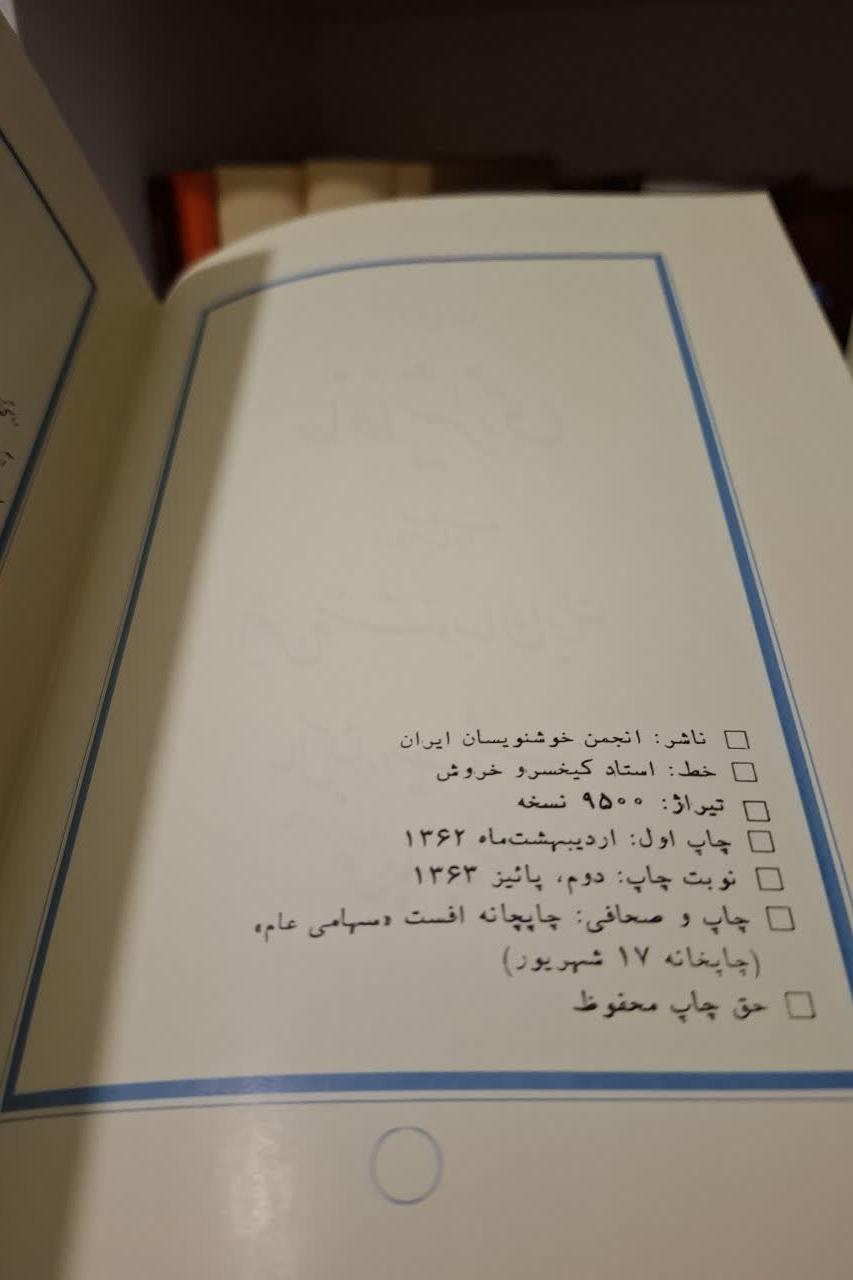 □ ناشر: انجمن خوشنویسان ایران
□ خط: استاد کیخسرو خروش
□ تیراژ: ۹۵۰۰ نسخه
□ چاپ اول: اردیبهشت‌ماه ۱۳۶۲
□ نوبت چاپ: دوم، پائیز ۱۳۶۳
□ چاپ و صحافی: چاپخانه افست «سهامی عام»
(چاپخانه ۱۷ شهریور)
□ حق چاپ محفوظ